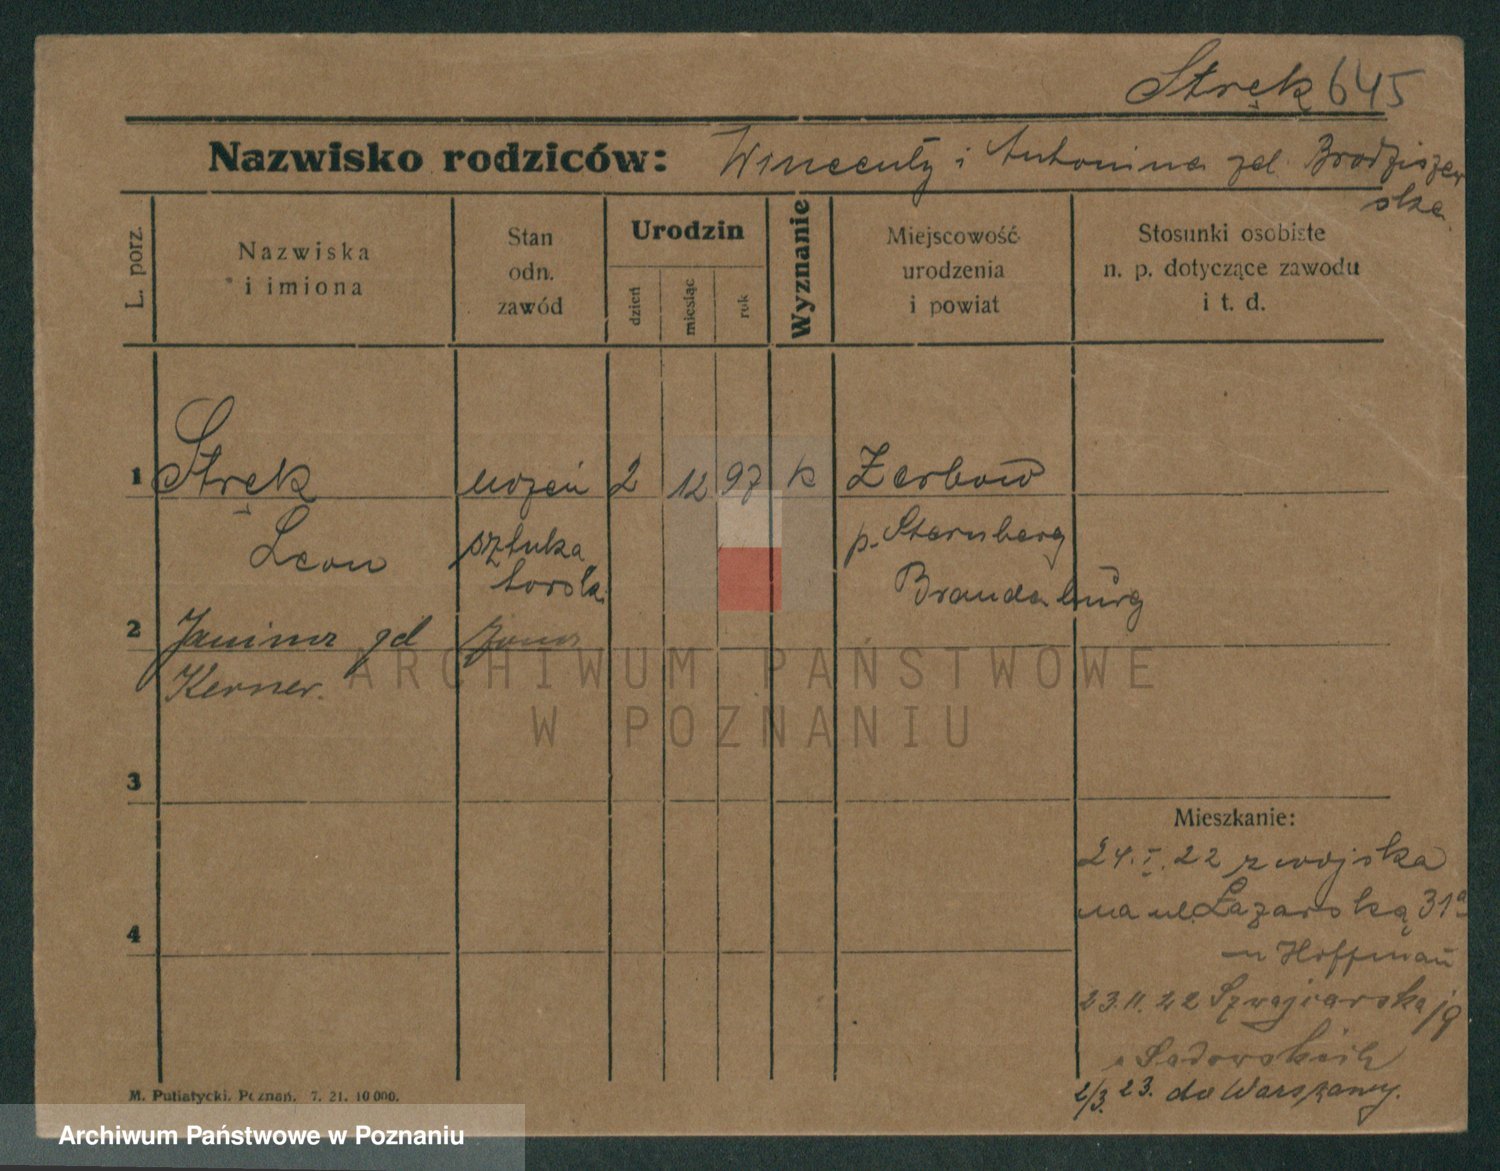 Stręk 645
Nazwisko rodziców: Wincenty i Antonina zd. Brodziszew
ska
L. porz.
Nazwiska
i imiona
Stan
odn.
zawód
Urodzin
dzień
miesiąc
rok
Wyznanie
Miejscowość
urodzenia
i powiat
Stosunki osobiste
n. p. dotyczące zawodu
i t. d.
1 Stręk uczeń 2 12 97 k Zerbow
Leon sztuka p. Sternberg
torsk. Brandenburg
2 Janina zd żona
Kerner.
ARCHIWUM PAŃSTWOWE
W POZNANIU
3
Mieszkanie:
24.I.22 z wojska
na ul. Łazarską 31a
4
u Hoffman
23.11.22 Szwajcarska 19
u Sadowskich
2/3. 23. do Warszawy.
M. Putiatycki, Poznań. 7. 21. 10 000.
Archiwum Państwowe w Poznaniu